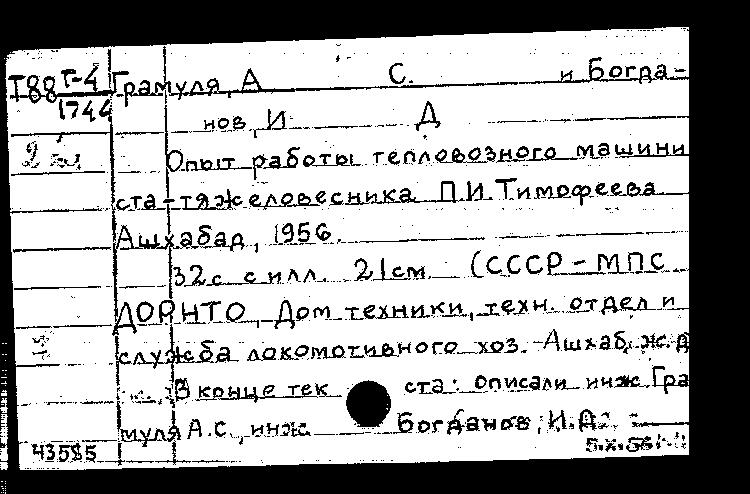 Т88 Т-4 Грамуля, А С. и Богда-
1744
нов, И Д
2
Опыт работы тепловозного машини
ста-тяжеловесника П.И.Тимофеева
Ашхабад, 1956.
32с с илл. 21см (СССР-МПС
ДОРНТО, Дом техники, техн. отдел и
служба локомотивного хоз. Ашхаб. ж.д
В конце тек ста: описали инж. Гра
муля А.С., инж. Богданов, И.Д.
43585
5.X.56